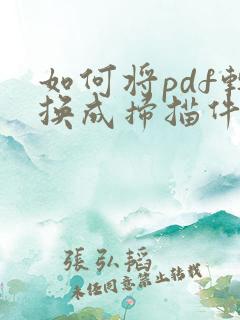 如何将pdf轉
换成扫描件
張弘韜
未经同意禁止转载